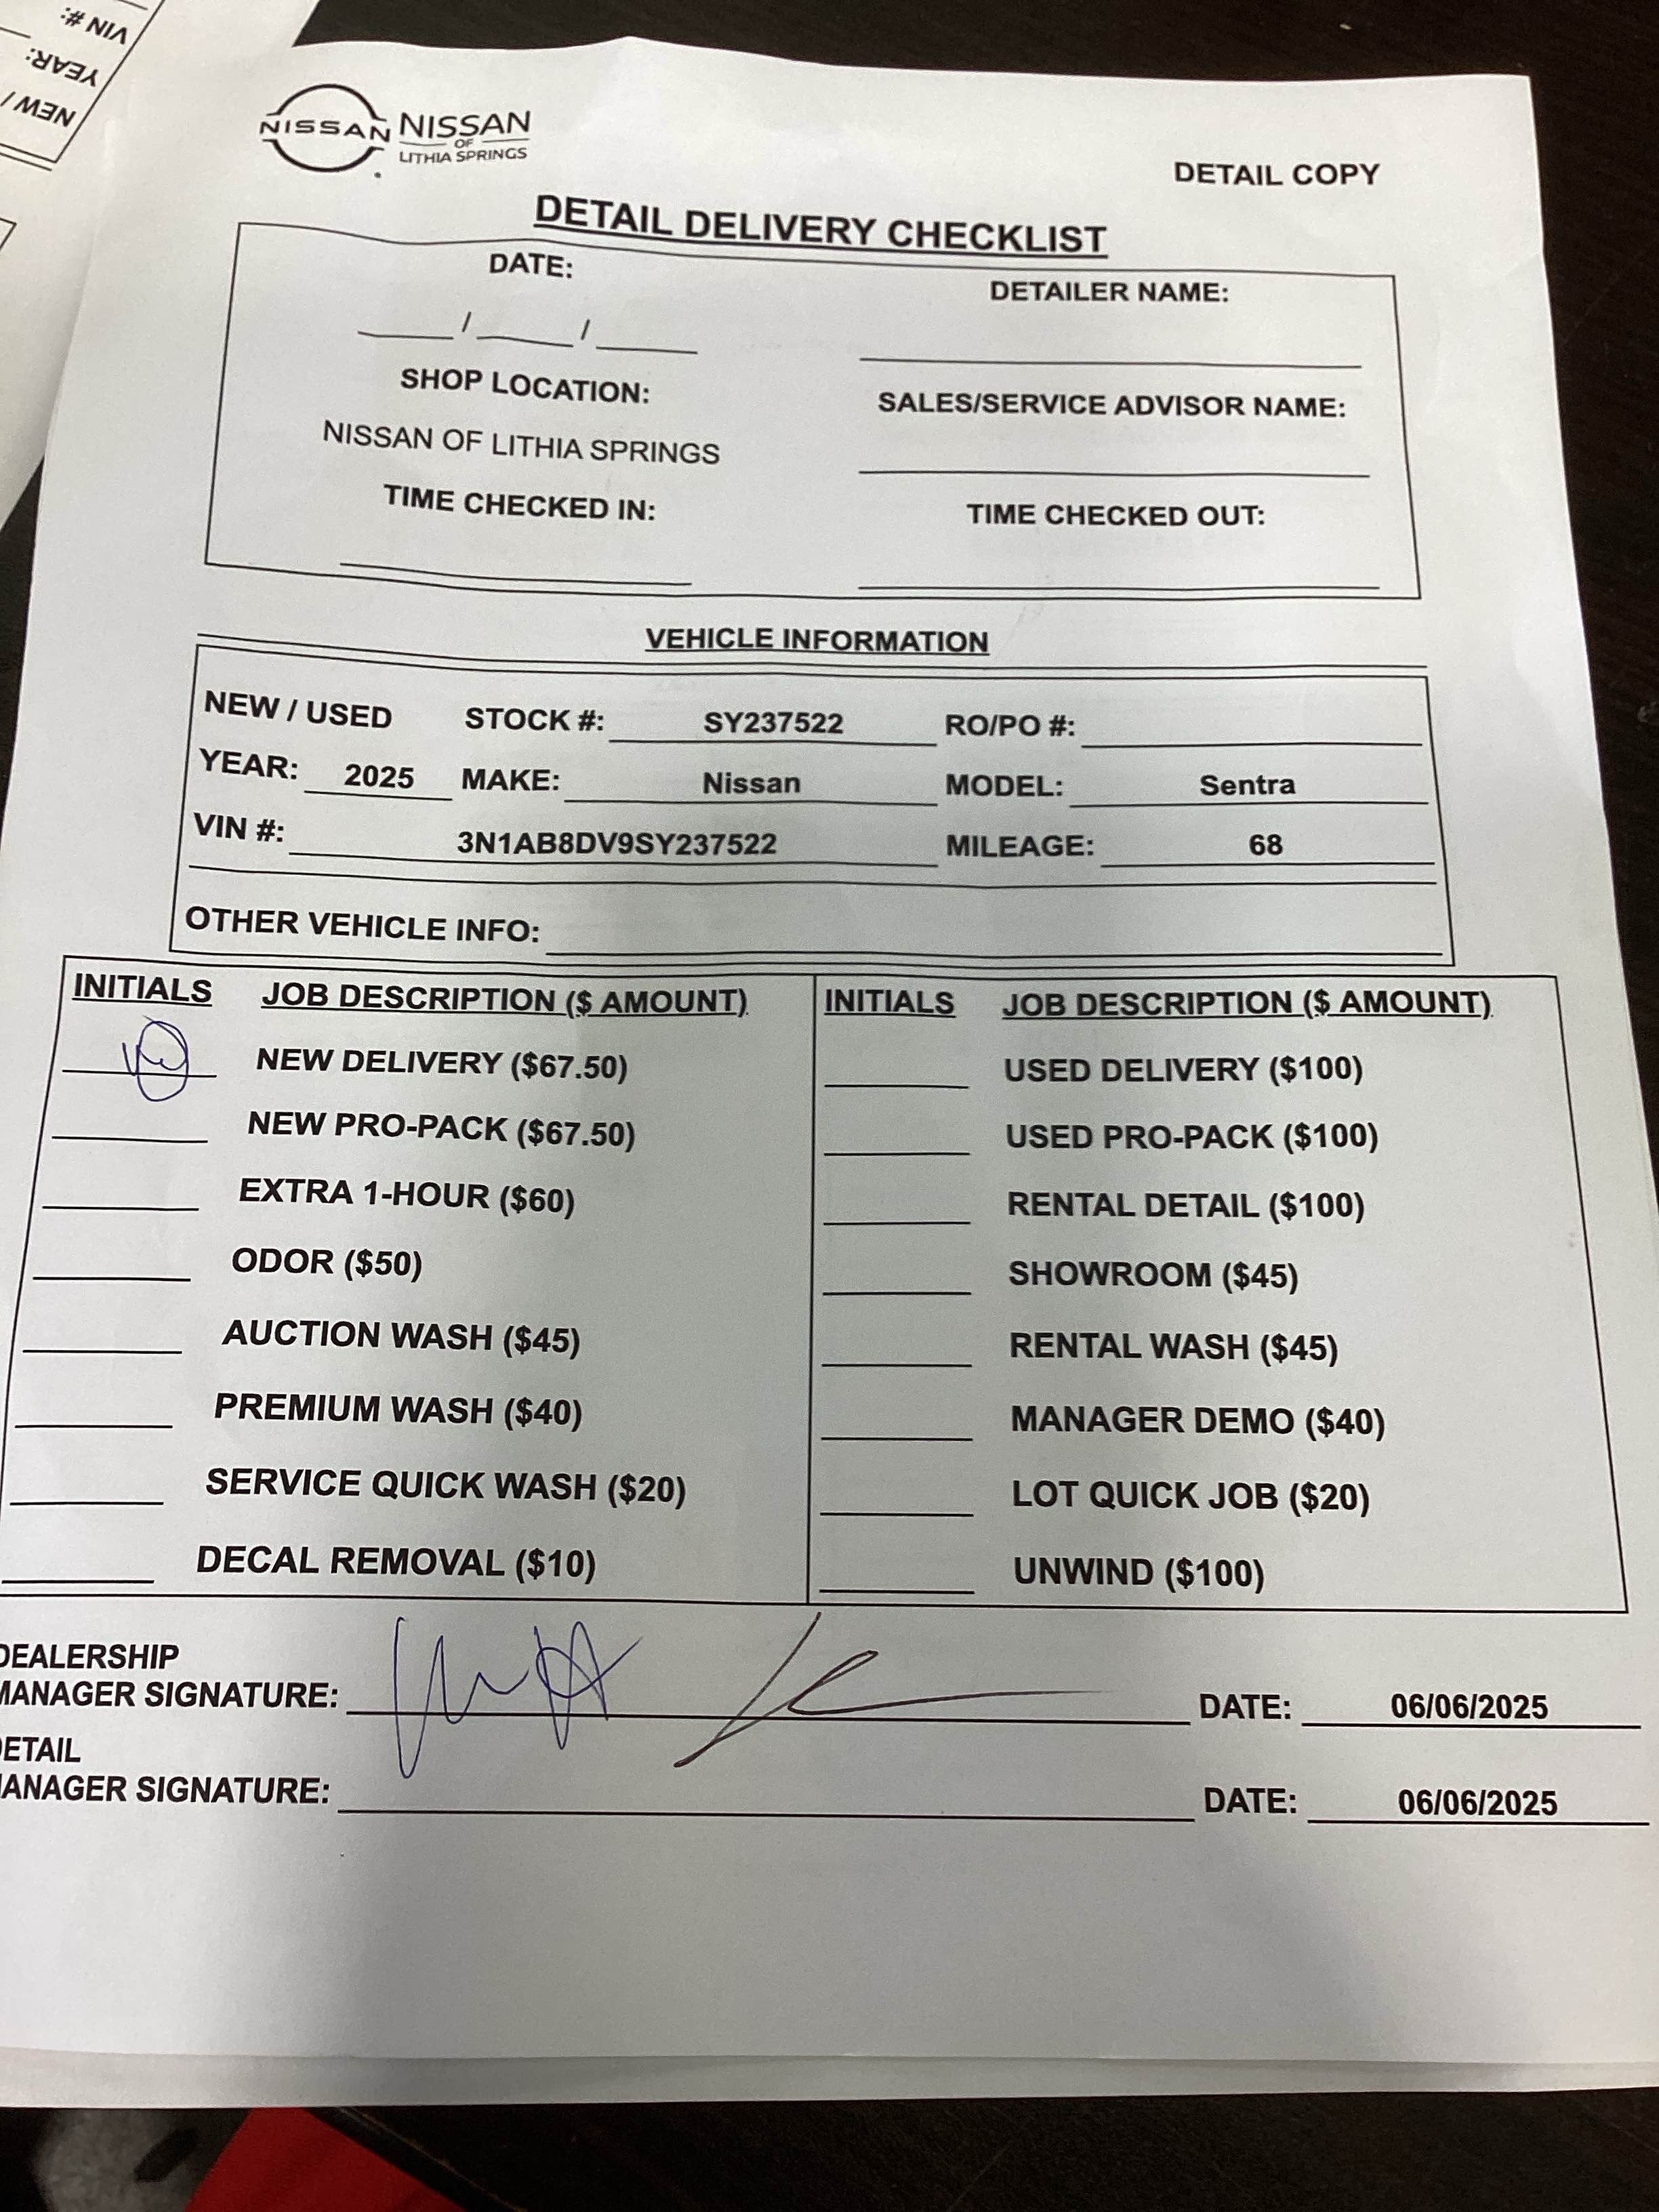 VIN #:
YEAR:
NEW /
NISSAN NISSAN
OF
LITHIA SPRINGS
DETAIL COPY
DETAIL DELIVERY CHECKLIST
DATE:
DETAILER NAME:
____ / ____ / ____
SHOP LOCATION:
SALES/SERVICE ADVISOR NAME:
NISSAN OF LITHIA SPRINGS
TIME CHECKED IN:
TIME CHECKED OUT:
VEHICLE INFORMATION
NEW / USED STOCK #: SY237522 RO/PO #:
YEAR: 2025 MAKE: Nissan MODEL: Sentra
VIN #: 3N1AB8DV9SY237522 MILEAGE: 68
OTHER VEHICLE INFO:
INITIALS JOB DESCRIPTION ($ AMOUNT) INITIALS JOB DESCRIPTION ($ AMOUNT)
NEW DELIVERY ($67.50) USED DELIVERY ($100)
NEW PRO-PACK ($67.50) USED PRO-PACK ($100)
EXTRA 1-HOUR ($60) RENTAL DETAIL ($100)
ODOR ($50) SHOWROOM ($45)
AUCTION WASH ($45) RENTAL WASH ($45)
PREMIUM WASH ($40) MANAGER DEMO ($40)
SERVICE QUICK WASH ($20) LOT QUICK JOB ($20)
DECAL REMOVAL ($10) UNWIND ($100)
DEALERSHIP
MANAGER SIGNATURE: DATE: 06/06/2025
ETAIL
ANAGER SIGNATURE: DATE: 06/06/2025